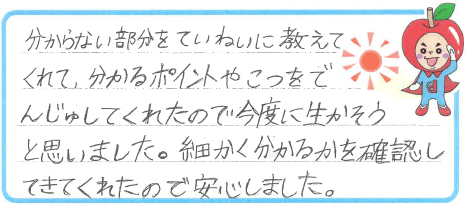 分からない部分をていねいに教えて
くれて、分かるポイントやこつをで
んじゅしてくれたので今度に生かそう
と思いました。細かく分かるかを確認し
てきてくれたので安心しました。